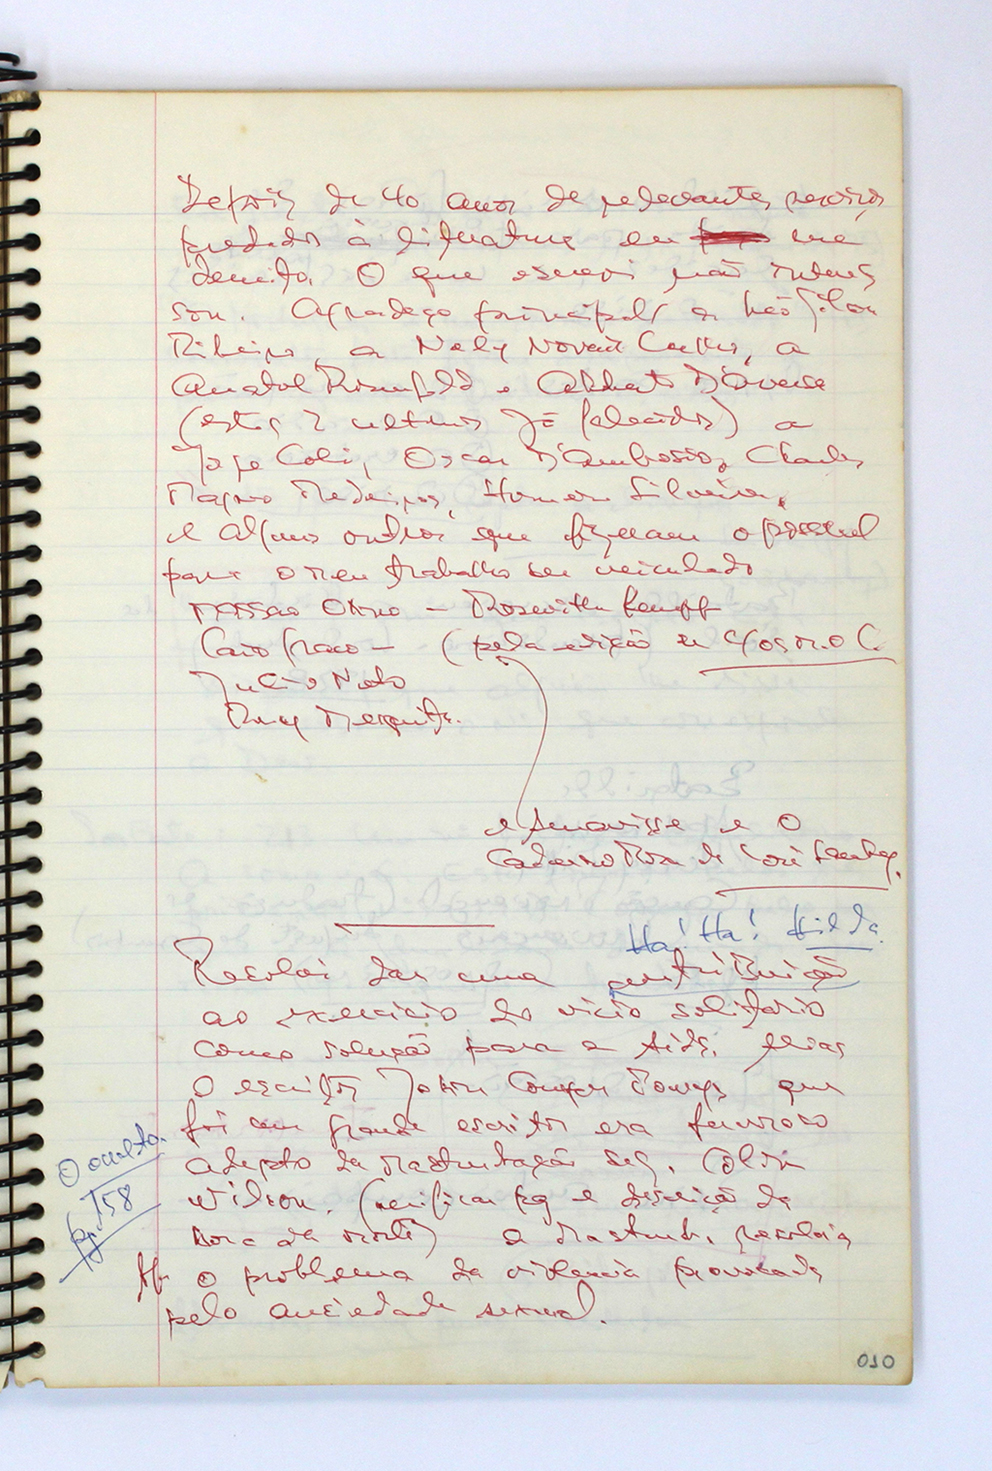 Depois de 40 anos de relevantes serviços
prestados à literatura eu me
demito. O que escrevi não interes
sou. Agradeço principal/ a Léo Gilson
Ribeiro, a Nelly Novaes Coelho, a
Anatol Rosenfeld e
(estes 2 ultimos já falecidos) a
Jorge Coli, Oscar D'Ambrosio, Charles
Magno Medeiros, Homero Silveira,
e alguns outros que fizeram o possivel
para o meu trabalho ser veiculado
Massao Ohno — Roswitha Kempf
Caio Graco — (pela edição de
Julio Neto
Ruy Mesquita.
e o
Caderno Rosa de Lori Lamby.
Ha! Ha! Hilda.
Resolvi dar uma contribuição
ao exercicio do vicio solitario
como solução para a Aids.
O escritor John Cowper Powys que
foi um grande escritor era fervoroso
adepto da masturbação seg. Colin
Wilson. (verificar pg e descrição da
hora da morte) a Masturb. resolveria
O oculto.
pg. 158
o problema da violencia provocada
pela ansiedade sexual.
010